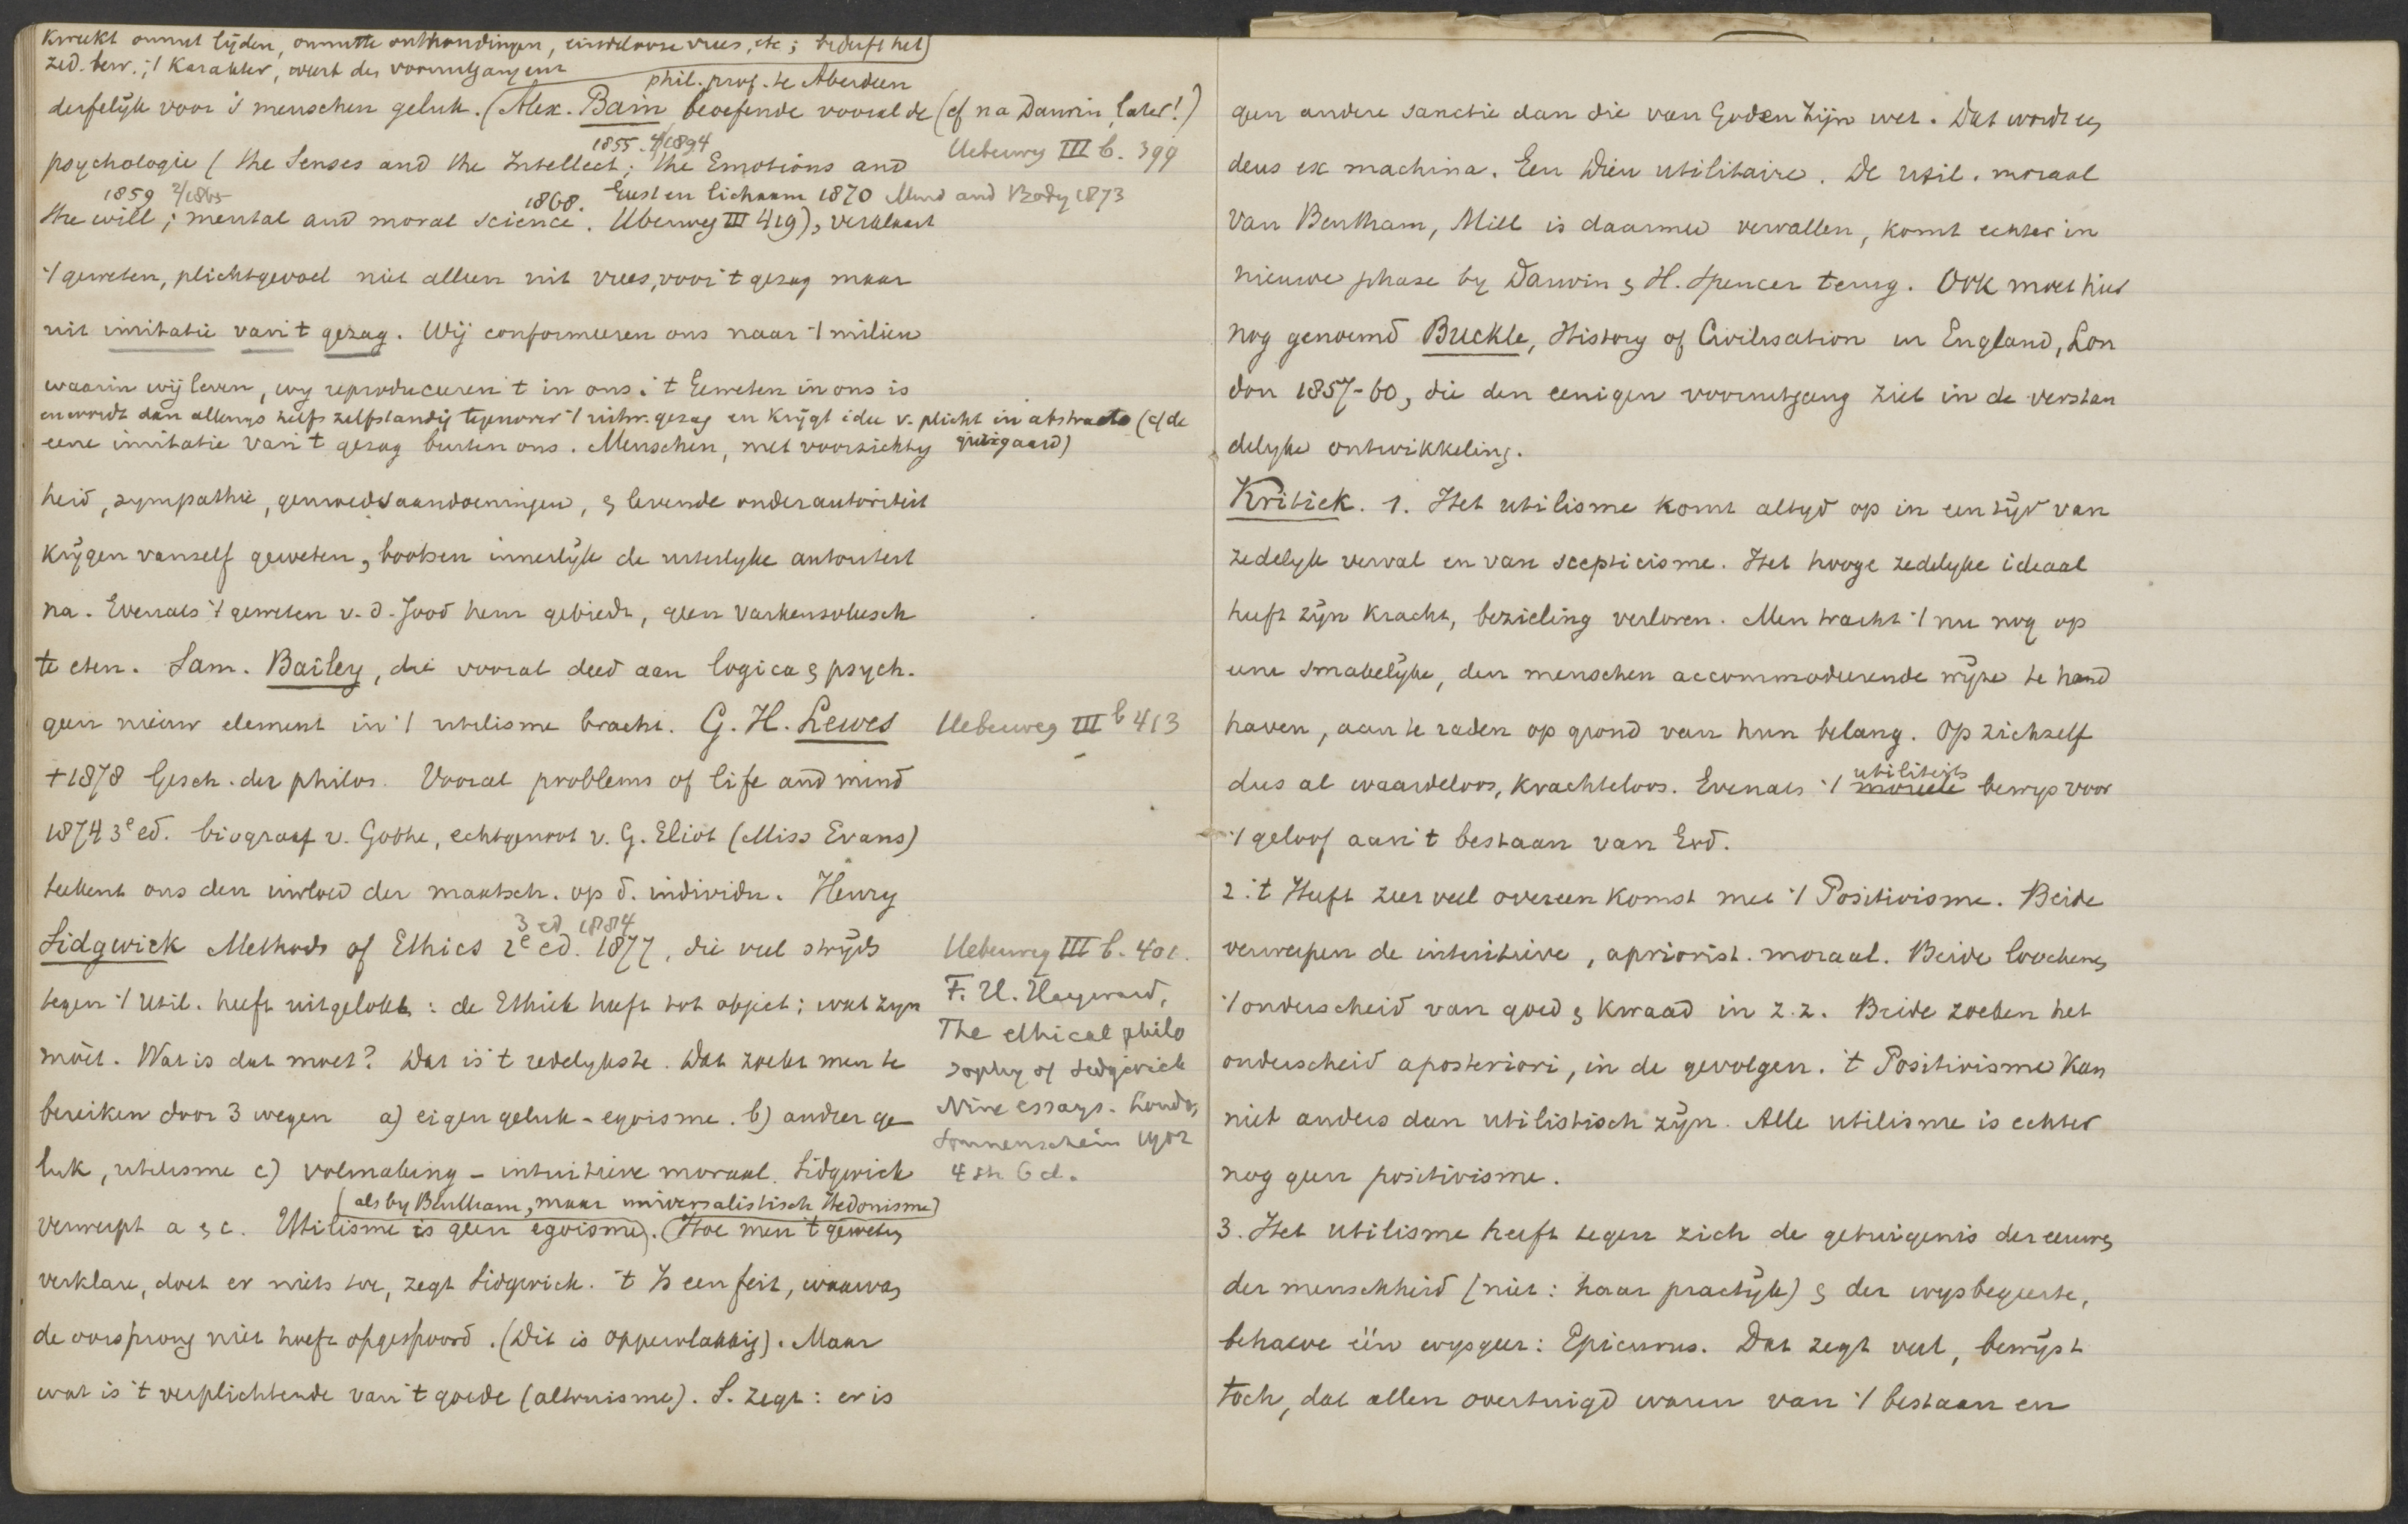 kweekt onnut lijden, onnutte onthoudingen, eindelooze vrees, etc; bederft het
zed. bew.; 't karakter, weert den vooruitgang en is
phil. prof. te Aberdeen
derfelijk voor 's menschen geluk. (Alex. Bain beoefende vooral de (cf na Darwin, later!)
1855. 4/1894
psychologie (the Senses and the Intellect; the Emotions and
Ueberweg III b. 399
1859 2/1865 1868. Geest en lichaam 1870 Mind and Body 1873
the will; mental and moral science. Uberweg III 419), verklaart
't geweten, plichtgevoel niet alleen uit vrees, voor 't gezag maar
uit imitatie van 't gezag. Wij conformeeren ons naar 't milieu
waarin wij leven, wy reproduceeren 't in ons. 't Geweten in ons is
en wordt dan allengs zelfs zelfstandig tegenover 't uitw. gezag en krygt idee v. plicht in abstracto (cf de
eene imitatie van 't gezag buiten ons. Menschen, met voorzichtig
gierigaard)
heid, sympathie, gemoedsaandoeningen, & levende onder autoriteit
krijgen vanself geweten, bootsen innerlijk de uiterlyke autoriteit
na. Evenals 't geweten v. d. Jood hem gebiedt, geen varkensvleesch
te eten. Sam. Bailey, die vooral deed aan logica & psych.
geen nieuw element in 't utilisme bracht. G. H. Lewes
Ueberweg III b 413
+1878 Gesch. der philos. Vooral problems of life and mind
1874 3e ed. biograaf v. Göthe, echtgenoot v. G. Eliot (Miss Evans)
teekent ons den invloed der maatsch. op d. individu. Henry
3 ed 1884
Sidgwick Methods of Ethics 2e ed. 1877, die veel strijds
Ueberweg III b. 401.
tegen 't Util. heeft uitgelokt: de Ethiek heeft tot object: wat zyn
moet. Wat is dat moet? Dat is 't redelykste. Dat zoekt men te
bereiken door 3 wegen a) eigen geluk - egoisme. b) ander ge
luk, utilisme c) volmaking - intuitieve moraal. Sidgwick
F. H. Hayward,
The ethical philo
sophy of Sedgwick
Nine essays. London,
Sonnenschein 1902
4 sh 6 d.
(als by Bentham, maar universalistisch Hedonisme)
verwerpt a & c. Utilisme is geen egoisme). (Hoe men 't geweten
verklare, doet er niets toe, zegt Sidgwick. 't Is een feit, waarvan
de oorsprong niet hoeft opgespoord. (Dit is oppervlakkig). Maar
wat is 't verplichtende van 't goede (altruisme). S. zegt: er is
geen andere sanctie dan die van God en Zijn wet. Dat wordt een
deus ex machina. Een Dieu utilitaire. De util. moraal
van Bentham, Mill is daarmee vervallen, komt echter in
nieuwe phase by Darwin & H. Spencer terug. Ook moet hier
nog genoemd Buckle, History of Civilisation in England, Lon
don 1857-60, die den eenigen vooruitgang ziet in de verstan
delyke ontwikkeling.
Kritiek. 1. Het utilisme komt altyd op in een tijd van
zedelyk verval en van scepticisme. Het hooge zedelyke ideaal
heeft zijn kracht, bezieling verloren. Men tracht 't nu nog op
eene smakelijke, den menschen accommodeerende wijze te hand
haven, aan te raden op grond van hun belang. Op zichzelf
utiliteits
dus al waardeloos, krachteloos. Evenals 't moreele bewys voor
't geloof aan 't bestaan van God.
2. 't Heeft zeer veel overeenkomst met 't Positivisme. Beide
verwerpen de intuitieve, apriorist. moraal. Beide loochenen
't onderscheid van goed & kwaad in z. z. Beide zoeken het
onderscheid aposteriori, in de gevolgen. 't Positivisme kan
niet anders dan utilistisch zijn. Alle utilisme is echter
nog geen positivisme.
3. Het utilisme heeft tegen zich de getuigenis der eeuwen
der menschheid (niet: haar practijk) & der wysbegeerte,
behalve één wysgeer: Epicurus. Dat zegt veel, bewijst
toch, dat allen overtuigd waren van 't bestaan en